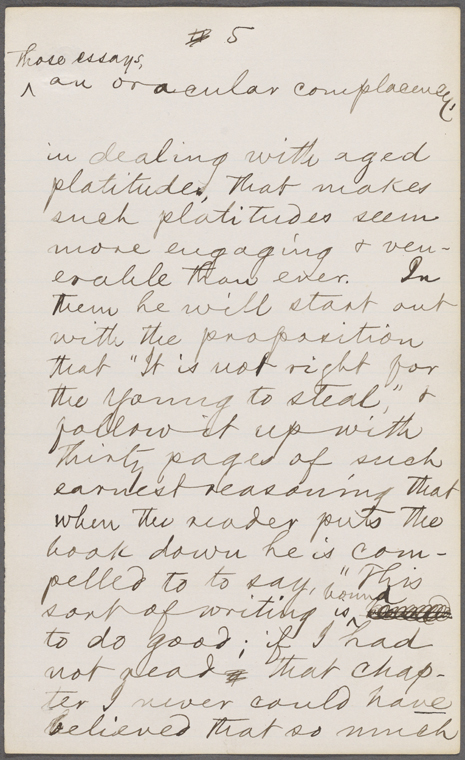 5
Those essays,
^ an oracular complacency
in dealing with aged
platitudes, that makes
such platitudes seem
more engaging & ven-
erable than ever. In
them he will start out
with the proposition
that "It is not right for
the young to steal," &
follow it up with
thirty pages of such
earnest reasoning that
when the reader puts the
book down he is com-
pelled to to say, "This
bound
sort of writing is ^
to do good; if I had
not read that chap-
ter I never could have
believed that so much